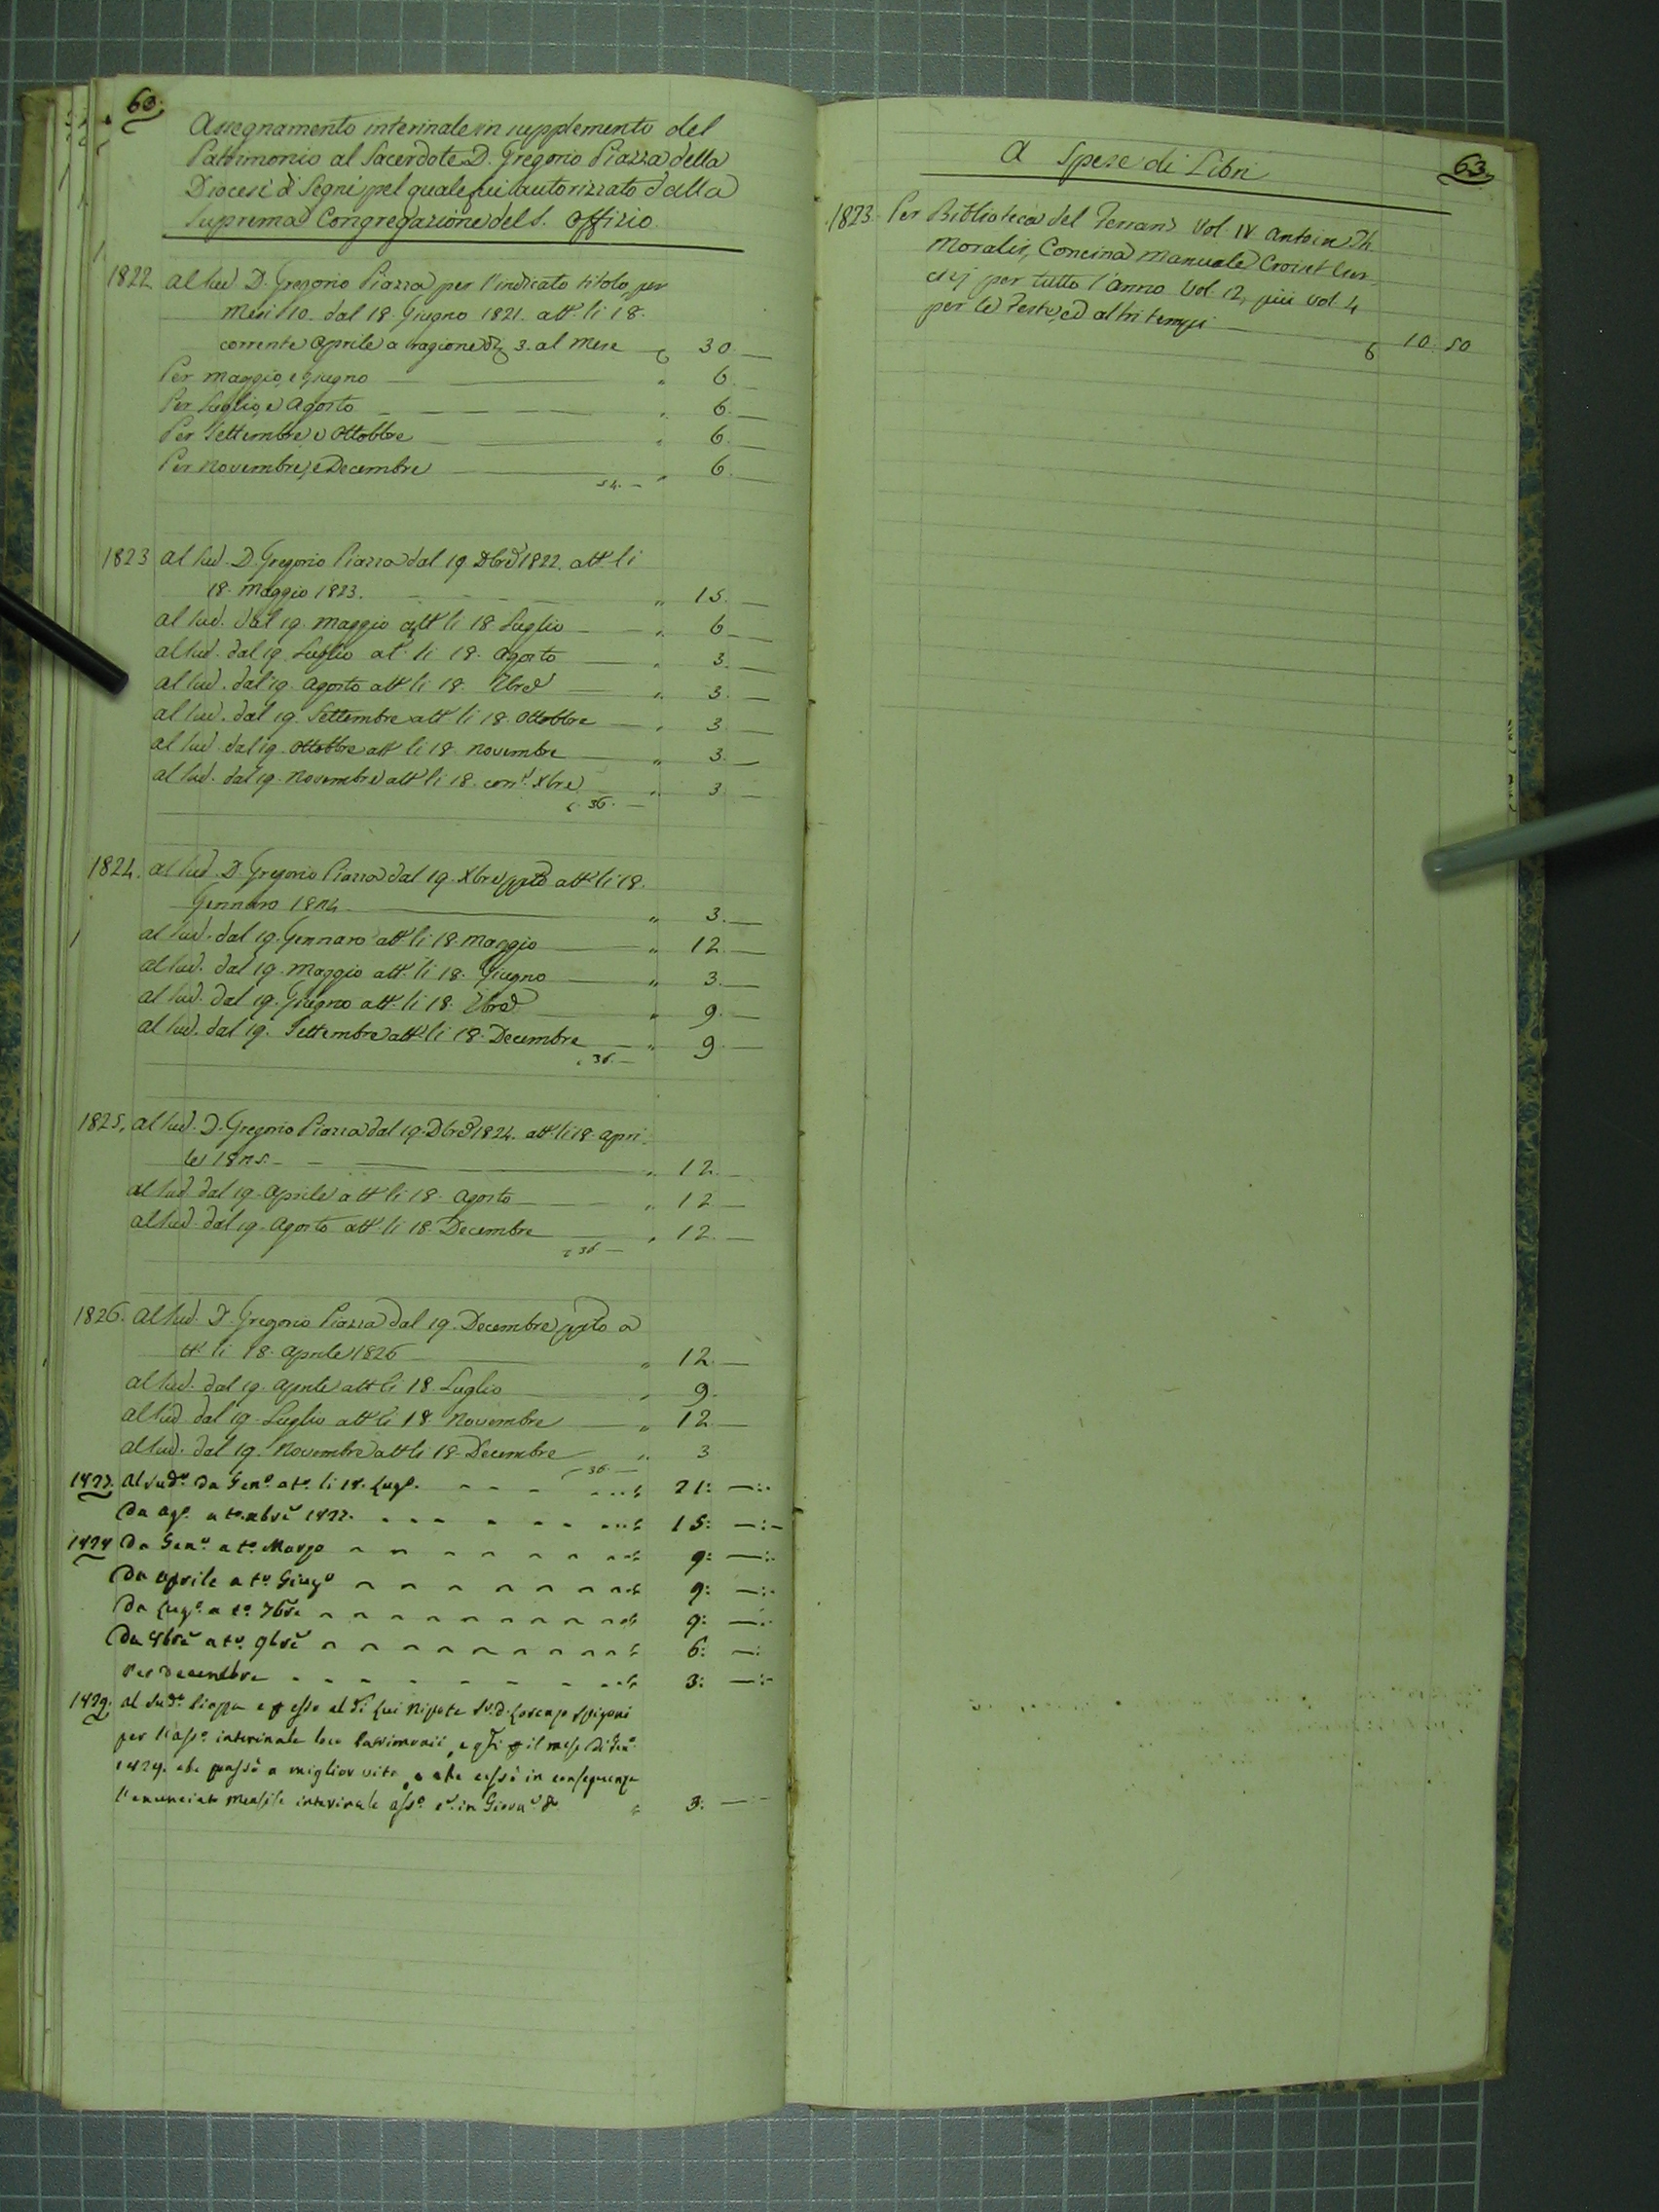 60.
Assegnamento interinale in supplemento del
Patrimonio al Sacerdote D. Gregorio Piazza della
Diocesi di Segni pel quale fui autorizzato dalla
Suprema Congregazione del S. Offizio
1822 Al sud. D. Gregorio Piazza per l'indicato titolo per
Mesi 10. dal 18. Giugno 1821. att. li 18.
corrente Aprile a ragione di 3. al Mese 30. —
Per Maggio, e Giugno — — " 6. —
Per Luglio, e Agosto — — — — " 6. —
Per Settembre, e Ottobbre — — " 6. —
Per Novembre, e Decembre — " 6. —
54. —
1823 Al sud. D. Gregorio Piazza dal 19. Dbre 1822. att. li
18. Maggio 1823. - - - - " 15. —
al sud. dal 19. Maggio att li 18. Luglio — " 6 —
al sud. dal 19. Luglio at. li 18. Agosto — " 3. —
al sud. dal 19. Agosto att li 18. 7bre — " 3. —
al sud. dal 19. Settembre att li 18. Ottobbre — " 3. —
al sud. dal 19. Ottobbre att li 18. Novembre — " 3. —
al sud. dal 19. Novembre att li 18. corr. Xbre — " 3. —
36. —
1824. al sud. D. Gregorio Piazza dal 19. Xbre ppto att li 18.
Gennaro 1824 — " 3. —
al sud. dal 19. Gennaro att. li 18. Maggio — " 12. —
al sud. dal 19. Maggio att. li 18. Giugno — " 3. —
al sud. dal 19. Giugno att. li 18. 7bre — " 9. —
al sud. dal 19. Settembre att. li 18. Decembre — " 9 —
36. —
1825. al sud. D. Gregorio Piazza dal 19. Dbre 1824. att li 18. Apri-
le 1825. - - — " 12. —
al sud dal 19. Aprile att li 18. Agosto — " 12 —
al sud. dal 19. Agosto att. li 18. Decembre — " 12. —
36. —
1826. Al sud. D. Gregorio Piazza dal 19. Decembre ppto a
tt. li 18. Aprile 1826 — " 12. —
al sud. dal 19. Aprile att li 18. Luglio — " 9. -
al sud dal 19. Luglio att li 18 Novembre — " 12. —
al sud. dal 19. Novembre att li 18. Decembre — " 3
36. —
1827. Al sud.o da Gen.o at.o li 18. Lugl. - - - 21: —:-
Da Ag.o a t.o Xbre 1827. - - - - - - 15: —:-
1828 Da Gen.o a t.o Marzo 9: —:-
Da Aprile a t.o Giug.o 9: —:-
Da Lug.o a t.o 7bre 9: —:-
Da 8bre a t.o 9bre 6: —:
Per Decembre - - - - - - - 3: —:-
1829. Al sud.o Piazza e p esso al di lui Nipote D. Lorenzo Spigoni
per l'ass.o interinale loco Patrimonii, e p il mese di Gen.o
1829. che passò a miglior vita, e che cessò in conseguenza
l'enunciato mensile interinale ass.o 3: —:-
63.
A Spese di Libri
1823. Per Biblioteca del Ferraris Vol. IX Antoin Th.
Moralis, Concina Manuale Croiset Eser-
cizj per tutto l'anno Vol. 12, più Vol. 4
per le Feste, ed altri tempi — 10. 50